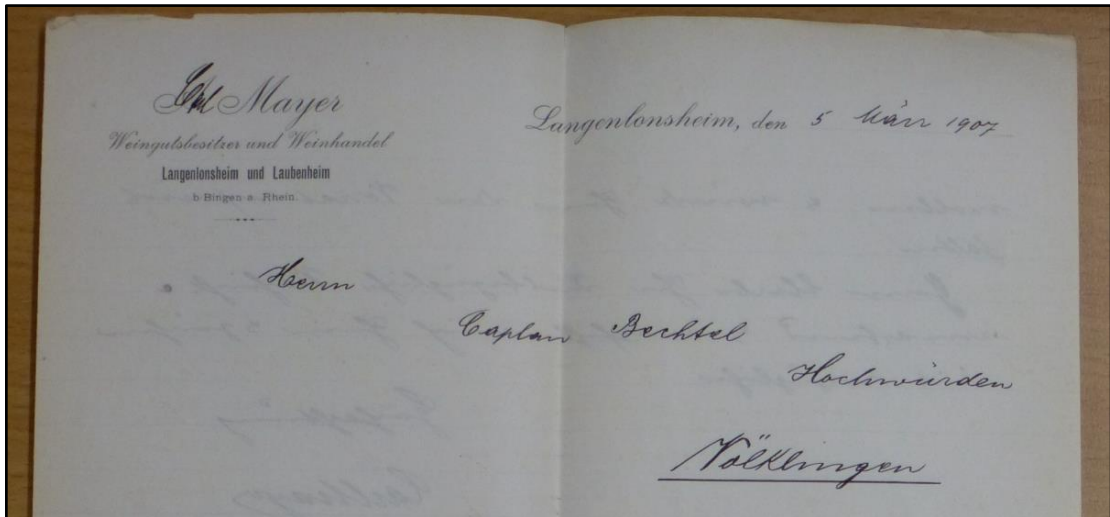 Mayer
Weingutsbesitzer und Weinhandel
Langenlonsheim und Laubenheim
b. Bingen a. Rhein.
Langenlonsheim, den 5 März 1907
Herrn
Caplan Bechtel
Hochwürden
Völklingen